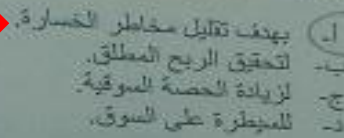 ا- بهدف تقليل مخاطر الخسارة.
ب- لتحقيق الربح المطلق.
ج- لزيادة الحصة السوقية.
د- للسيطرة على السوق.